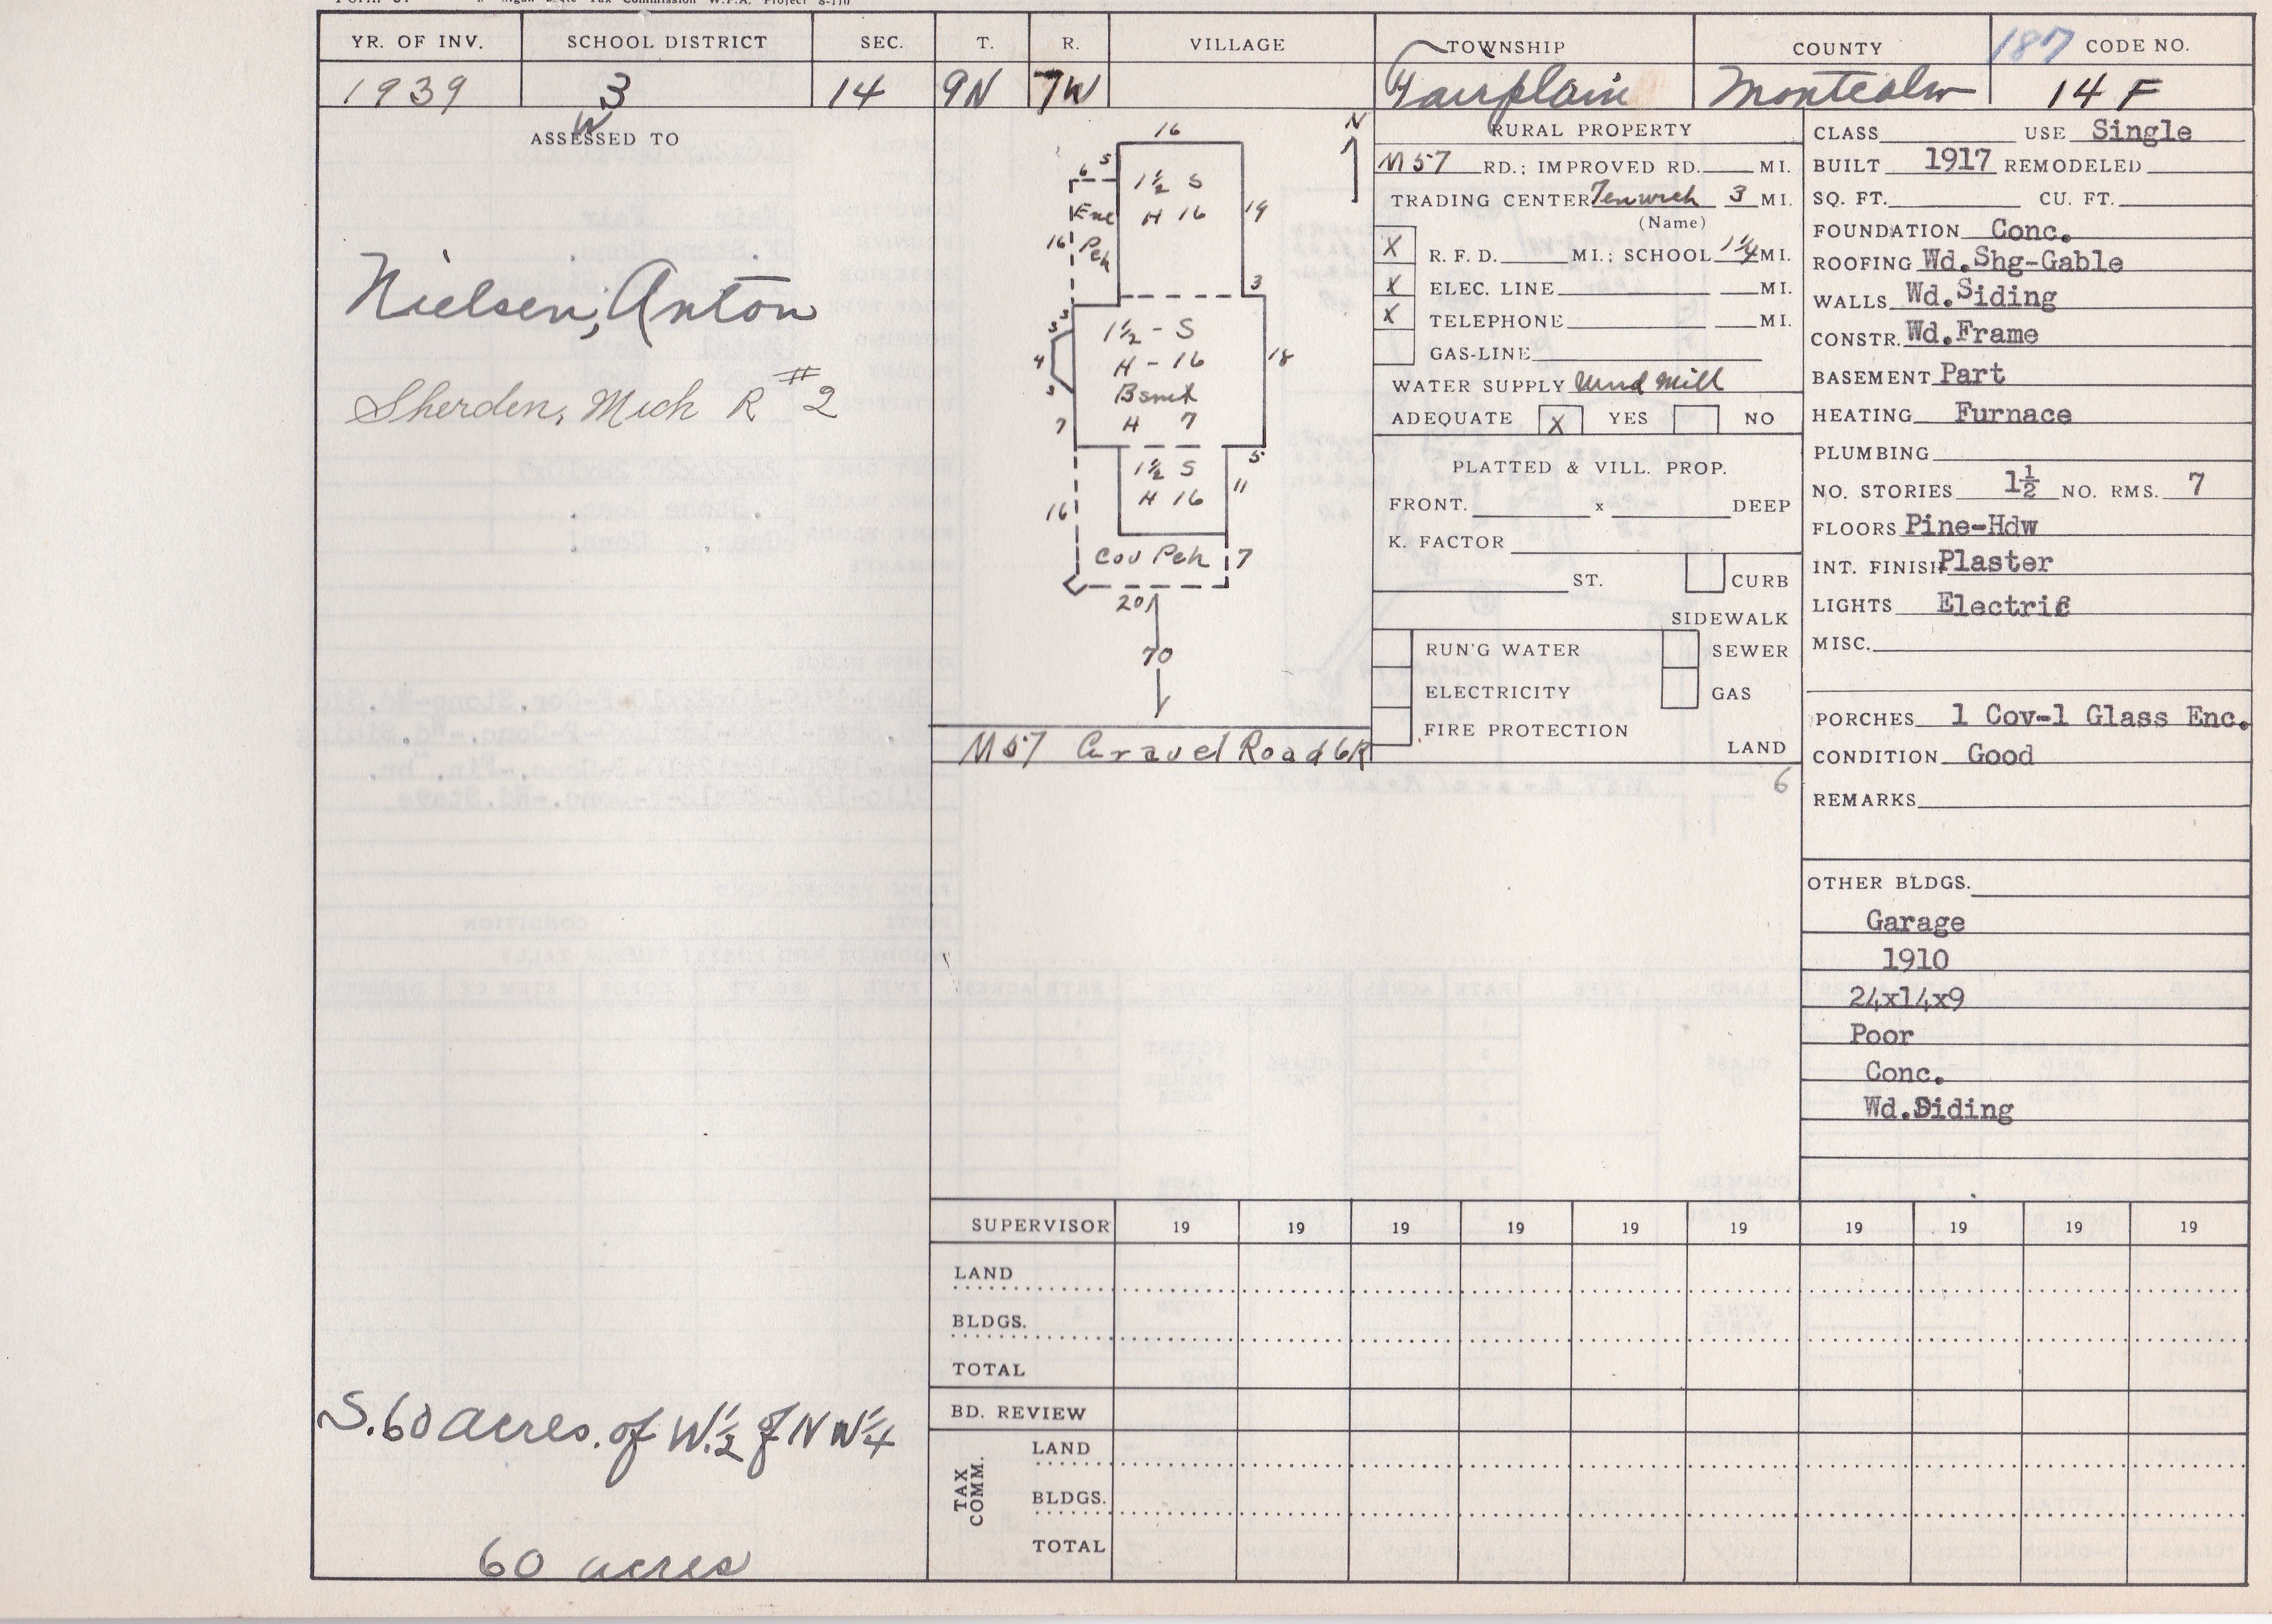 Tax Commission W.P.A. Project S-170
YR. OF INV. SCHOOL DISTRICT SEC. T. R. VILLAGE TOWNSHIP COUNTY 187 CODE NO.
1939 3 14 9N 7W Fairplain Montcalm 14 F
W
ASSESSED TO
Nielsen, Anton
Sherden, Mich R #2
S. 60 acres. of W. 1/2 of N W 1/4
60 acres
N
16
5
6
1 1/2 S
H 16
Enc
Pch
16
19
3
3
3
1 1/2 - S
H - 16
Bsmt
H 7
4
3
18
7
5
1 1/2 S
H 16
11
16
Cov Pch 7
20
70
M57 Gravel Road 6R
RURAL PROPERTY
M57 RD.; IMPROVED RD. MI.
TRADING CENTER Fenwick 3 MI.
(Name)
X R. F. D. MI.; SCHOOL 1 1/4 MI.
X ELEC. LINE MI.
X TELEPHONE MI.
GAS-LINE
WATER SUPPLY Wind Mill
ADEQUATE X YES NO
PLATTED & VILL. PROP.
FRONT. x DEEP
K. FACTOR
ST. CURB
SIDEWALK
RUN'G WATER SEWER
ELECTRICITY GAS
FIRE PROTECTION
LAND
6
CLASS USE Single
BUILT 1917 REMODELED
SQ. FT. CU. FT.
FOUNDATION Conc.
ROOFING Wd.Shg-Gable
WALLS Wd.Siding
CONSTR. Wd.Frame
BASEMENT Part
HEATING Furnace
PLUMBING
NO. STORIES 1½ NO. RMS. 7
FLOORS Pine-Hdw
INT. FINISH Plaster
LIGHTS Electric
MISC.
PORCHES 1 Cov-1 Glass Enc.
CONDITION Good
REMARKS
OTHER BLDGS.
Garage
1910
24x14x9
Poor
Conc.
Wd.Siding
SUPERVISOR 19 19 19 19 19 19 19 19 19 19
LAND
BLDGS.
TOTAL
BD. REVIEW
TAX COMM.
LAND
BLDGS.
TOTAL